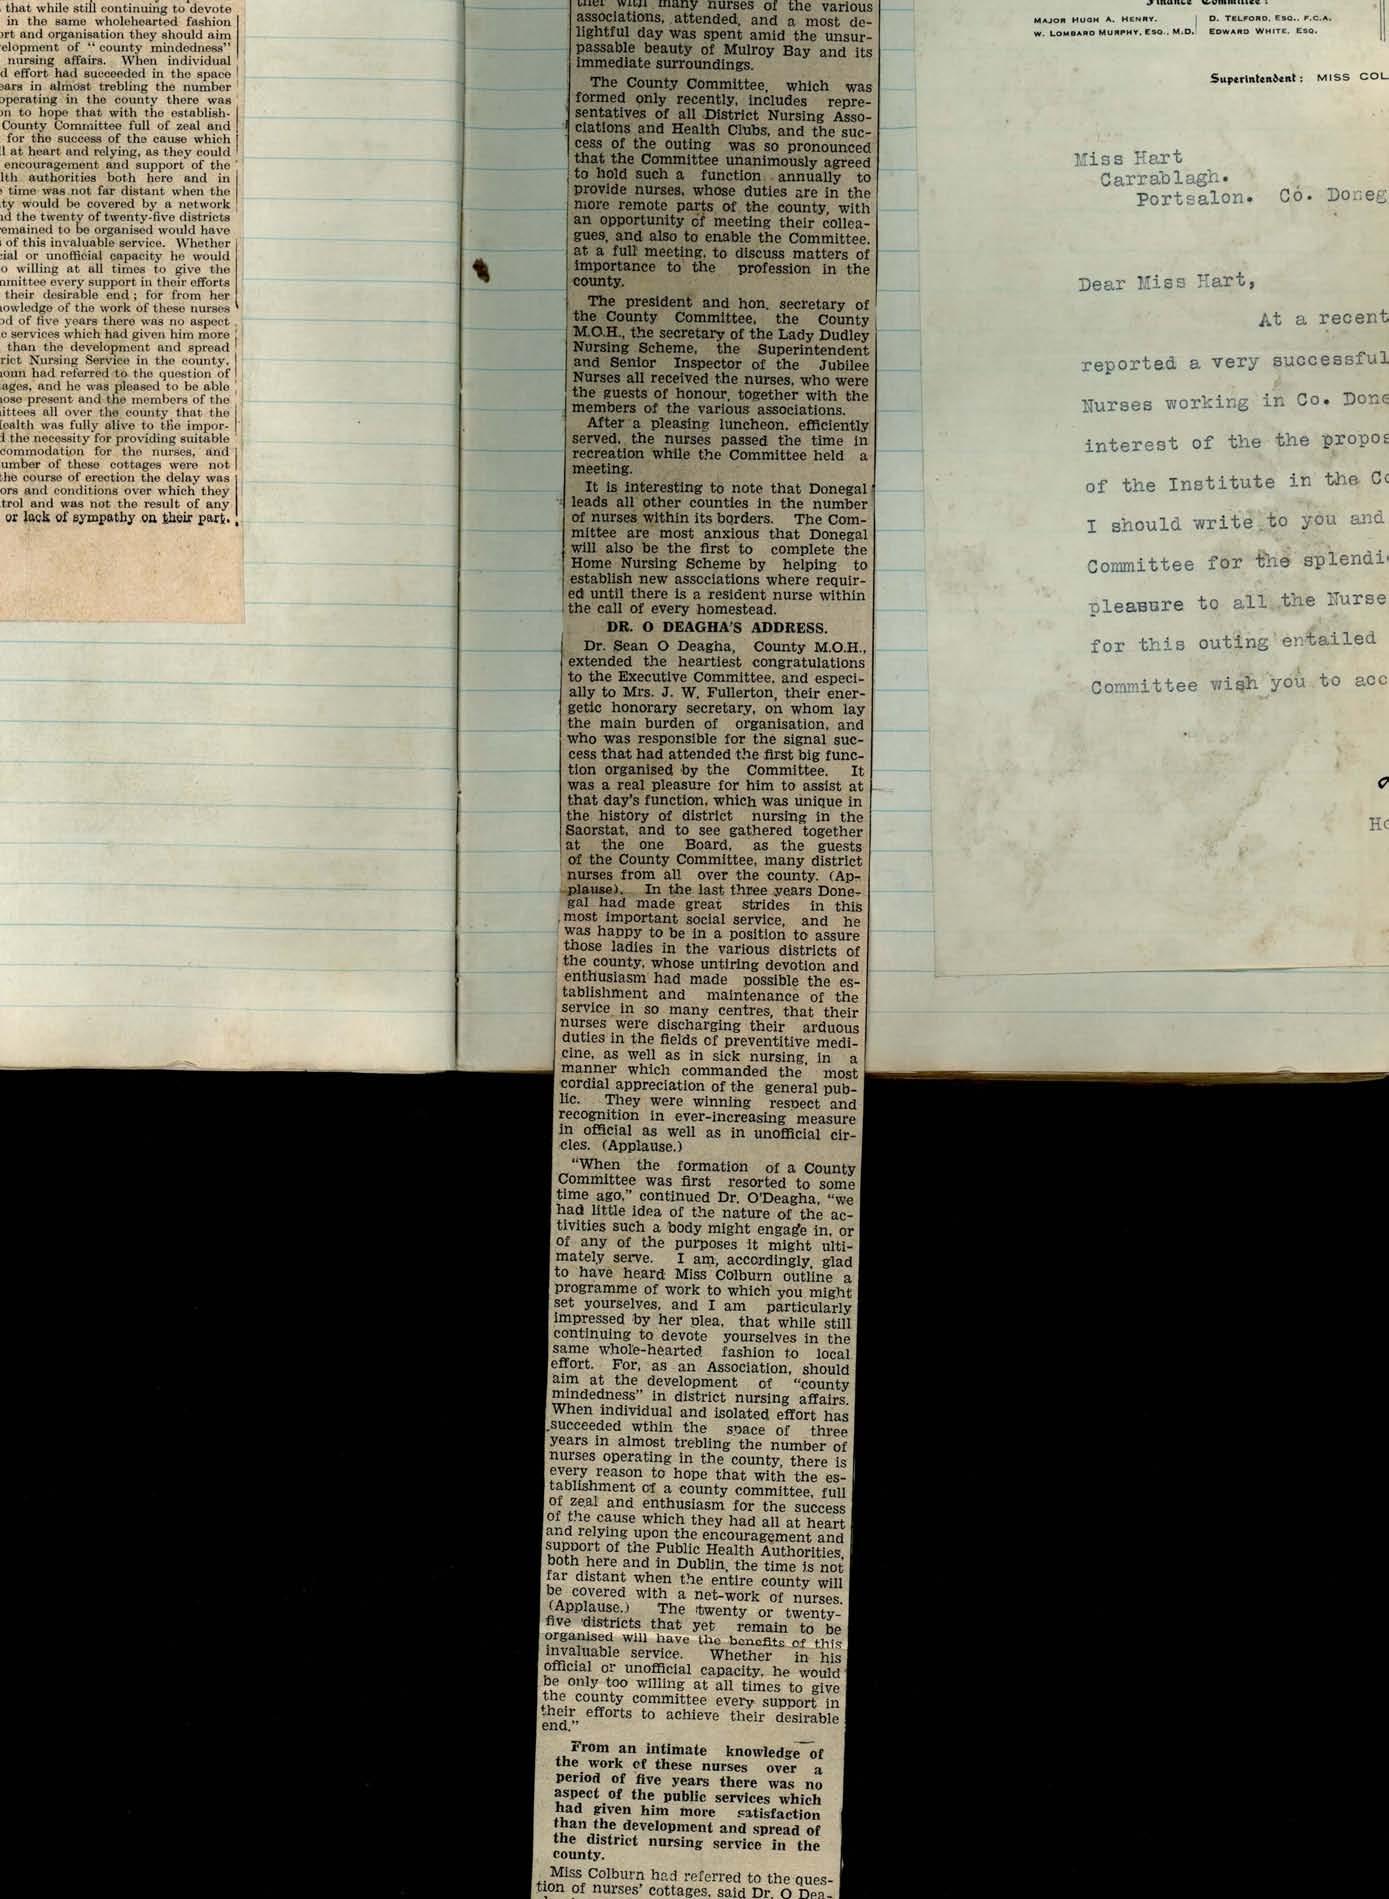 that while still continuing to devote
in the same wholehearted fashion
ort and organisation they should aim
elopment of " county mindedness"
nursing affairs. When individual
d effort had succeeded in the space
ears in almost trebling the number
operating in the county there was
on to hope that with the establish-
County Committee full of zeal and
for the success of the cause which
ll at heart and relying, as they could
encouragement and support of the
lth authorities both here and in
time was not far distant when the
ty would be covered by a network
nd the twenty of twenty-five districts
remained to be organised would have
of this invaluable service. Whether
cial or unofficial capacity he would
o willing at all times to give the
mmittee every support in their efforts
their desirable end ; for from her
nowledge of the work of these nurses
od of five years there was no aspect
c services which had given him more
than the development and spread
rict Nursing Service in the county.
houn had referred to the question of
ages, and he was pleased to be able
hose present and the members of the
mittees all over the county that the
Health was fully alive to the impor-
d the necessity for providing suitable
commodation for the nurses, and
umber of these cottages were not
the course of erection the delay was
ors and conditions over which they
trol and was not the result of any
or lack of sympathy on their part.
ther with many nurses of the various
associations, attended, and a most de-
lightful day was spent amid the unsur-
passable beauty of Mulroy Bay and its
immediate surroundings.
The County Committee, which was
formed only recently, includes repre-
sentatives of all District Nursing Asso-
ciations and Health Clubs, and the suc-
cess of the outing was so pronounced
that the Committee unanimously agreed
to hold such a function annually to
provide nurses, whose duties are in the
more remote parts of the county, with
an opportunity of meeting their collea-
gues, and also to enable the Committee.
at a full meeting, to discuss matters of
importance to the profession in the
county.
The president and hon. secretary of
the County Committee, the County
M.O.H., the secretary of the Lady Dudley
Nursing Scheme, the Superintendent
and Senior Inspector of the Jubilee
Nurses all received the nurses, who were
the guests of honour, together with the
members of the various associations.
After a pleasing luncheon, efficiently
served, the nurses passed the time in
recreation while the Committee held a
meeting.
It is interesting to note that Donegal
leads all other counties in the number
of nurses within its borders. The Com-
mittee are most anxious that Donegal
will also be the first to complete the
Home Nursing Scheme by helping to
establish new associations where requir-
ed until there is a resident nurse within
the call of every homestead.
DR. O DEAGHA'S ADDRESS.
Dr. Sean O Deagha, County M.O.H.,
extended the heartiest congratulations
to the Executive Committee, and especi-
ally to Mrs. J. W. Fullerton, their ener-
getic honorary secretary, on whom lay
the main burden of organisation, and
who was responsible for the signal suc-
cess that had attended the first big func-
tion organised by the Committee. It
was a real pleasure for him to assist at
that day's function, which was unique in
the history of district nursing in the
Saorstat, and to see gathered together
at the one Board, as the guests
of the County Committee, many district
nurses from all over the county. (Ap-
plause). In the last three years Done-
gal had made great strides in this
most important social service, and he
was happy to be in a position to assure
those ladies in the various districts of
the county, whose untiring devotion and
enthusiasm had made possible the es-
tablishment and maintenance of the
service in so many centres, that their
nurses were discharging their arduous
duties in the fields of preventitive medi-
cine, as well as in sick nursing, in a
manner which commanded the most
cordial appreciation of the general pub-
lic. They were winning respect and
recognition in ever-increasing measure
in official as well as in unofficial cir-
cles. (Applause.)
"When the formation of a County
Committee was first resorted to some
time ago," continued Dr. O'Deagha, "we
had little idea of the nature of the ac-
tivities such a body might engage in, or
of any of the purposes it might ulti-
mately serve. I am, accordingly, glad
to have heard Miss Colburn outline a
programme of work to which you might
set yourselves, and I am particularly
impressed by her plea, that while still
continuing to devote yourselves in the
same whole-hearted fashion to local
effort. For, as an Association, should
aim at the development of "county
mindedness" in district nursing affairs.
When individual and isolated effort has
succeeded wthin the space of three
years in almost trebling the number of
nurses operating in the county, there is
every reason to hope that with the es-
tablishment of a county committee, full
of zeal and enthusiasm for the success
of the cause which they had all at heart
and relying upon the encouragement and
support of the Public Health Authorities,
both here and in Dublin, the time is not
far distant when the entire county will
be covered with a net-work of nurses.
(Applause.) The twenty or twenty-
five districts that yet remain to be
organised will have the benefits of this
invaluable service. Whether in his
official or unofficial capacity, he would
be only too willing at all times to give
the county committee every support in
their efforts to achieve their desirable
end."
From an intimate knowledge of
the work of these nurses over a
period of five years there was no
aspect of the public services which
had given him more satisfaction
than the development and spread of
the district nursing service in the
county.
Miss Colburn had referred to the ques-
tion of nurses' cottages, said Dr. O Dea-
Finance Committee:
MAJOR HUGH A. HENRY. D. TELFORD, ESQ., F.C.A.
W. LOMBARD MURPHY, ESQ., M.D. EDWARD WHITE, ESQ.
Superintendent: MISS COL
Miss Hart
Carrablagh.
Portsalon. Co. Doneg
Dear Miss Hart,
At a recent
reported a very successful
Nurses working in Co. Done
interest of the the propos
of the Institute in the Co
I should write to you and
Committee for the splendi
pleasure to all the Nurse
for this outing entailed
Committee wish you to acc
Ho